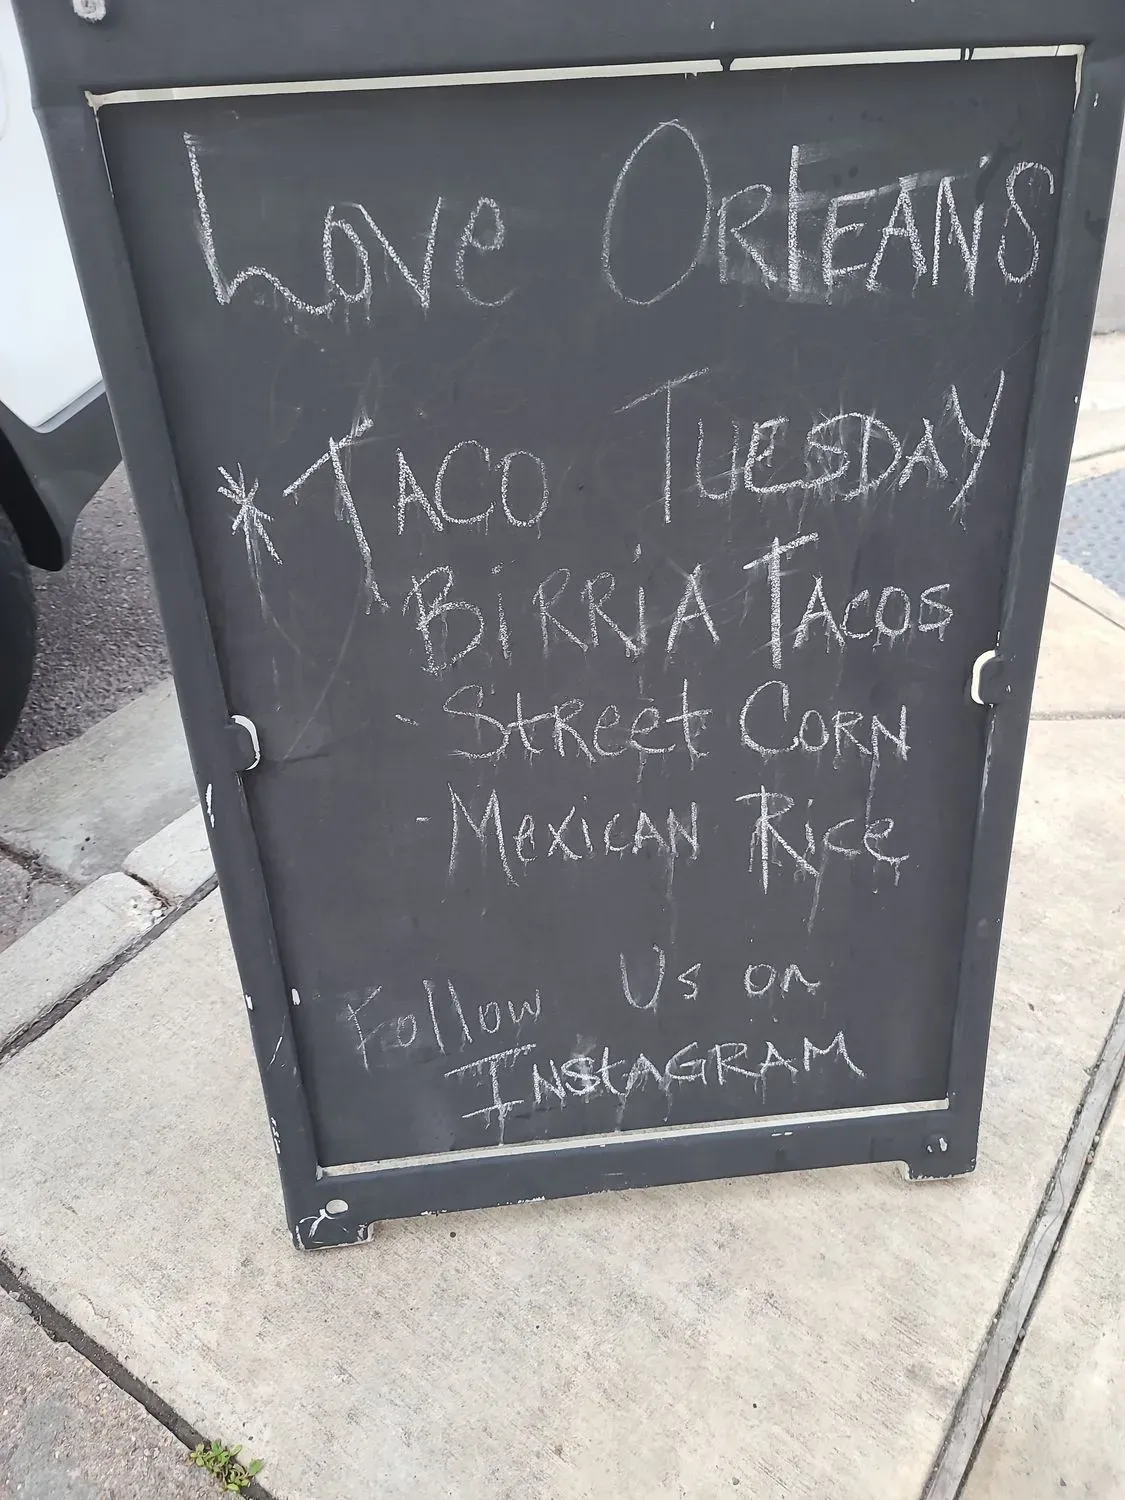 Love OrlEAN'S
* TACO TUESDAY
BiRRiA TAcos
- Street CORN
- MexicAN Rice
Follow Us on
INStAGRAM